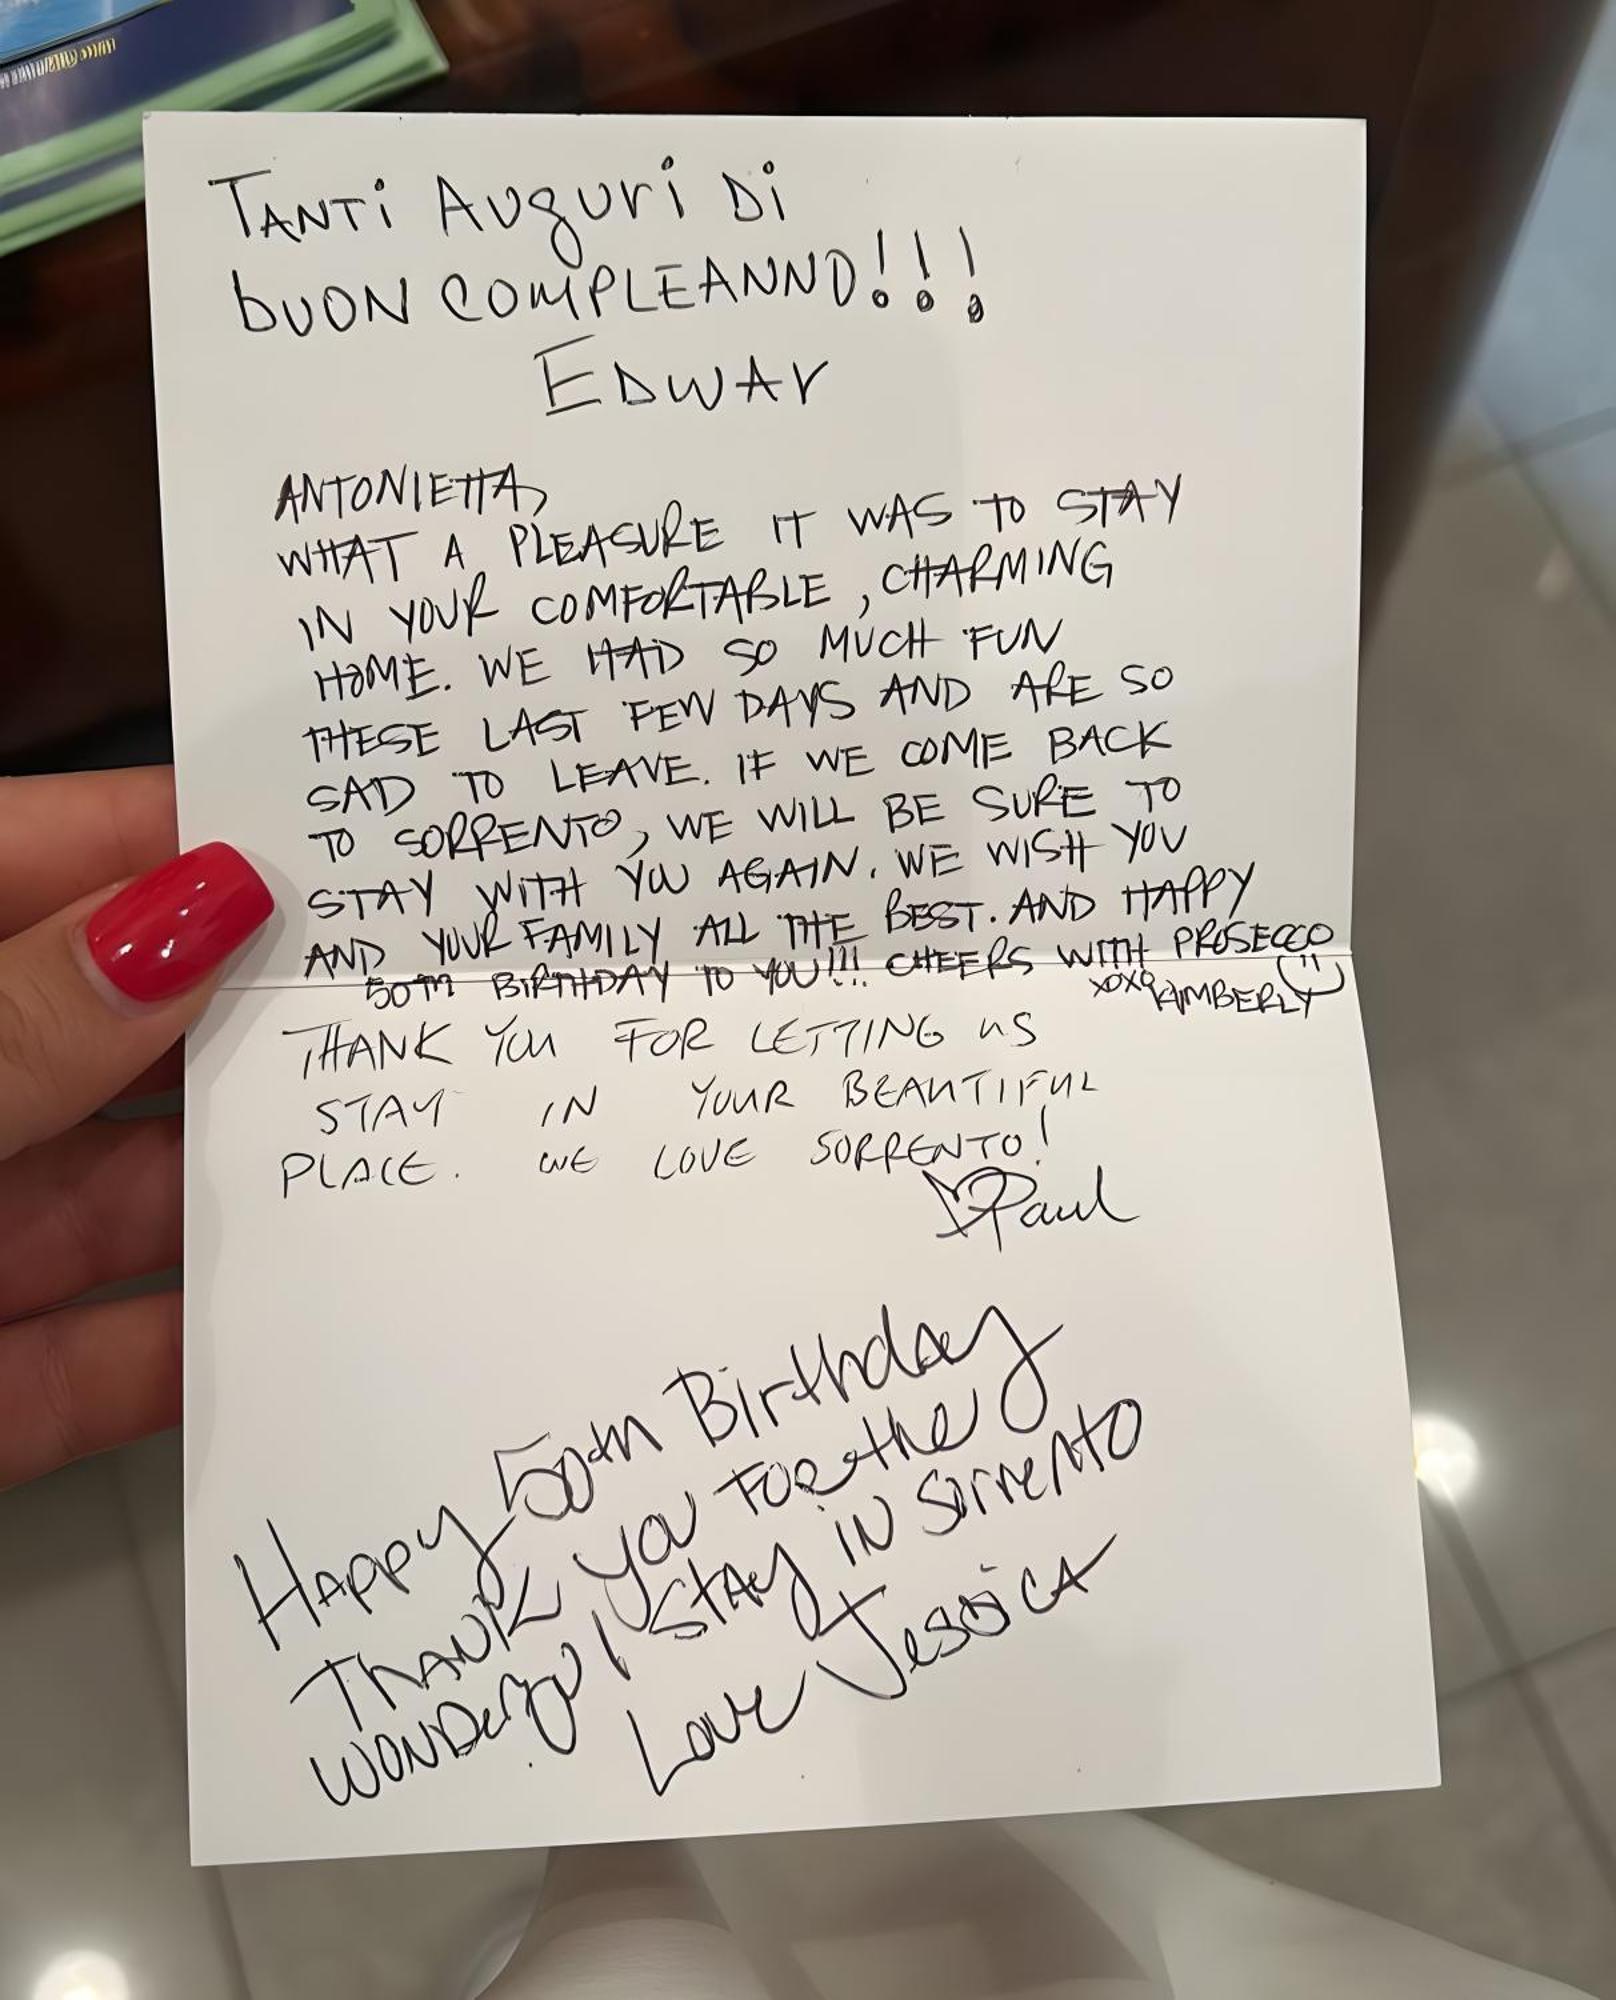 Tanti Auguri Di
buon compleanno!!!
Edwar
ANTONIETTA,
WHAT A PLEASURE IT WAS TO STAY
IN YOUR COMFORTABLE, CHARMING
HOME. WE HAD SO MUCH FUN
THESE LAST FEW DAYS AND ARE SO
SAD TO LEAVE. IF WE COME BACK
TO SORRENTO, WE WILL BE SURE TO
STAY WITH YOU AGAIN. WE WISH YOU
AND YOUR FAMILY ALL THE BEST. AND HAPPY
50TH BIRTHDAY TO YOU!!! CHEERS WITH PROSECCO
XOXO KIMBERLY
THANK YOU FOR LETTING US
STAY IN YOUR BEAUTIFUL
PLACE. WE LOVE SORRENTO!
Paul
Happy 50th Birthday
Thank you for the
wonderful stay in Sorrento
Love Jessica